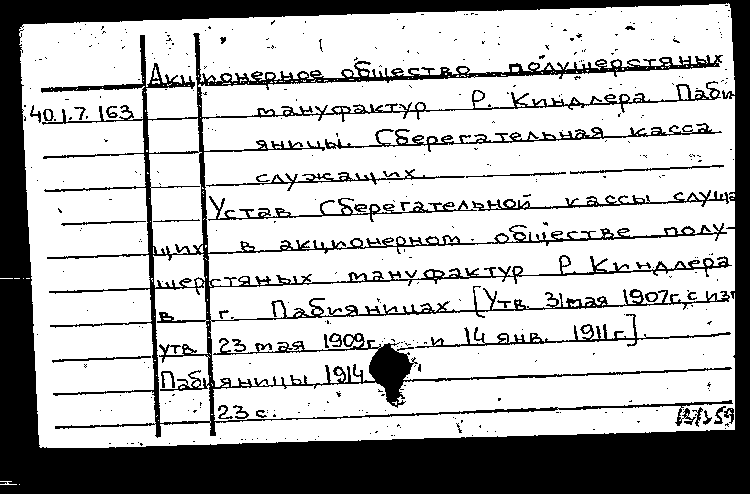 Акционерное общество полушерстяных
40.1.7.163 мануфактур Р. Киндлера Паби-
яницы. Сберегательная касса
служащих.
Устав Сберегательной кассы служа
щих в акционерном обществе полу-
шерстяных мануфактур Р. Киндлера
в г. Пабияницах. [Утв. 31 мая 1907г. с из
утв. 23 мая 1909г. и 14 янв. 1911г.].
Пабияницы, 1914
23 с.